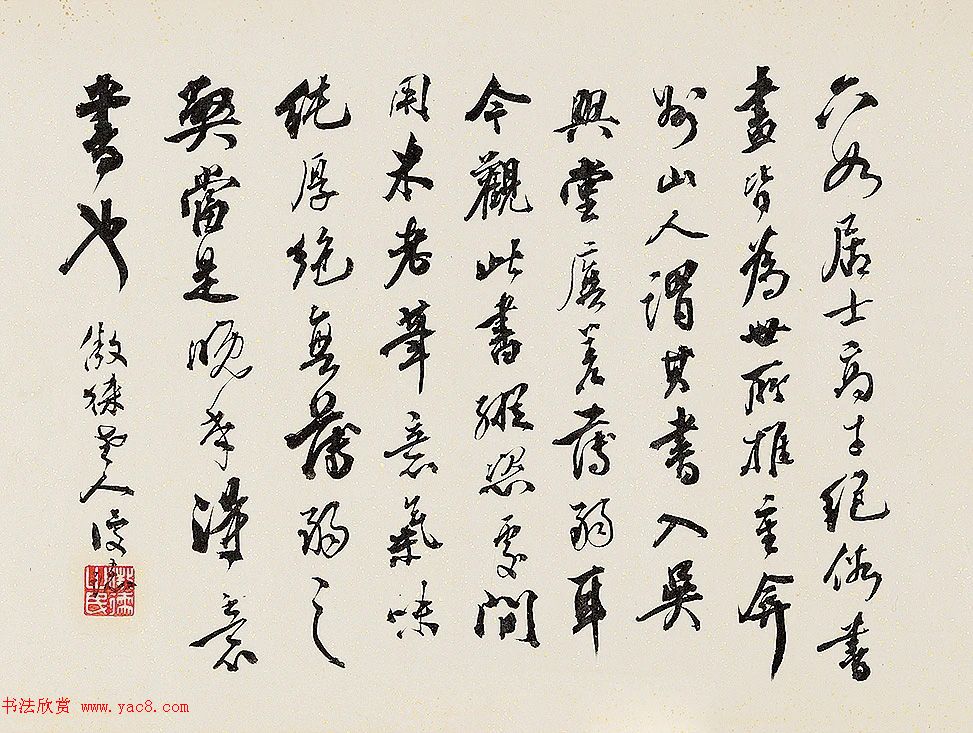 六如居士高才絕俗書
畫皆為世所推重弇
州山人謂其書入吳
興堂廡差薄弱耳
今觀此書縱恣處間
用米老筆意氣味
純厚絕無薄弱之
契當是晚年得意
書也
傲徠山人
书法欣赏 www.yac8.com